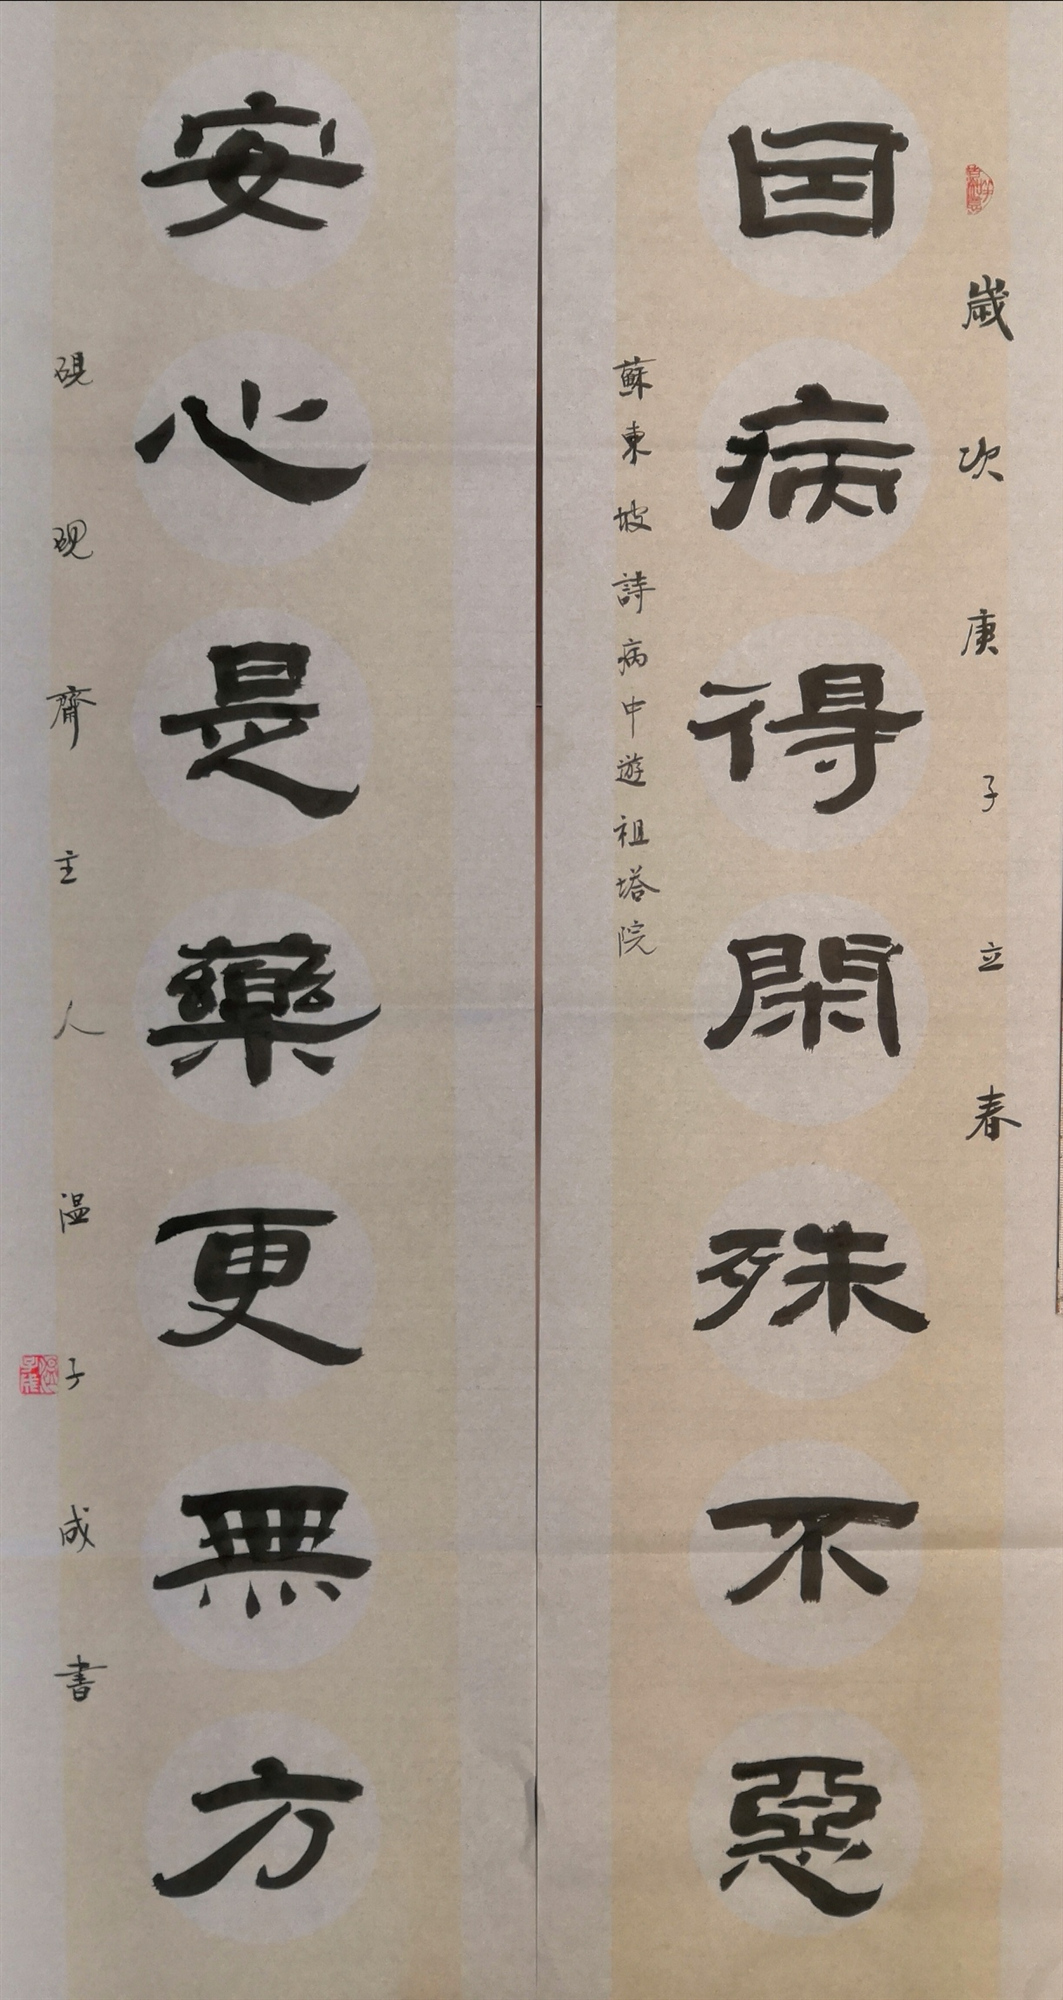 歲次庚子立春
因病得閑殊不惡
蘇東坡詩病中遊祖塔院
安心是藥更無方
硯硯齋主人溫子成書